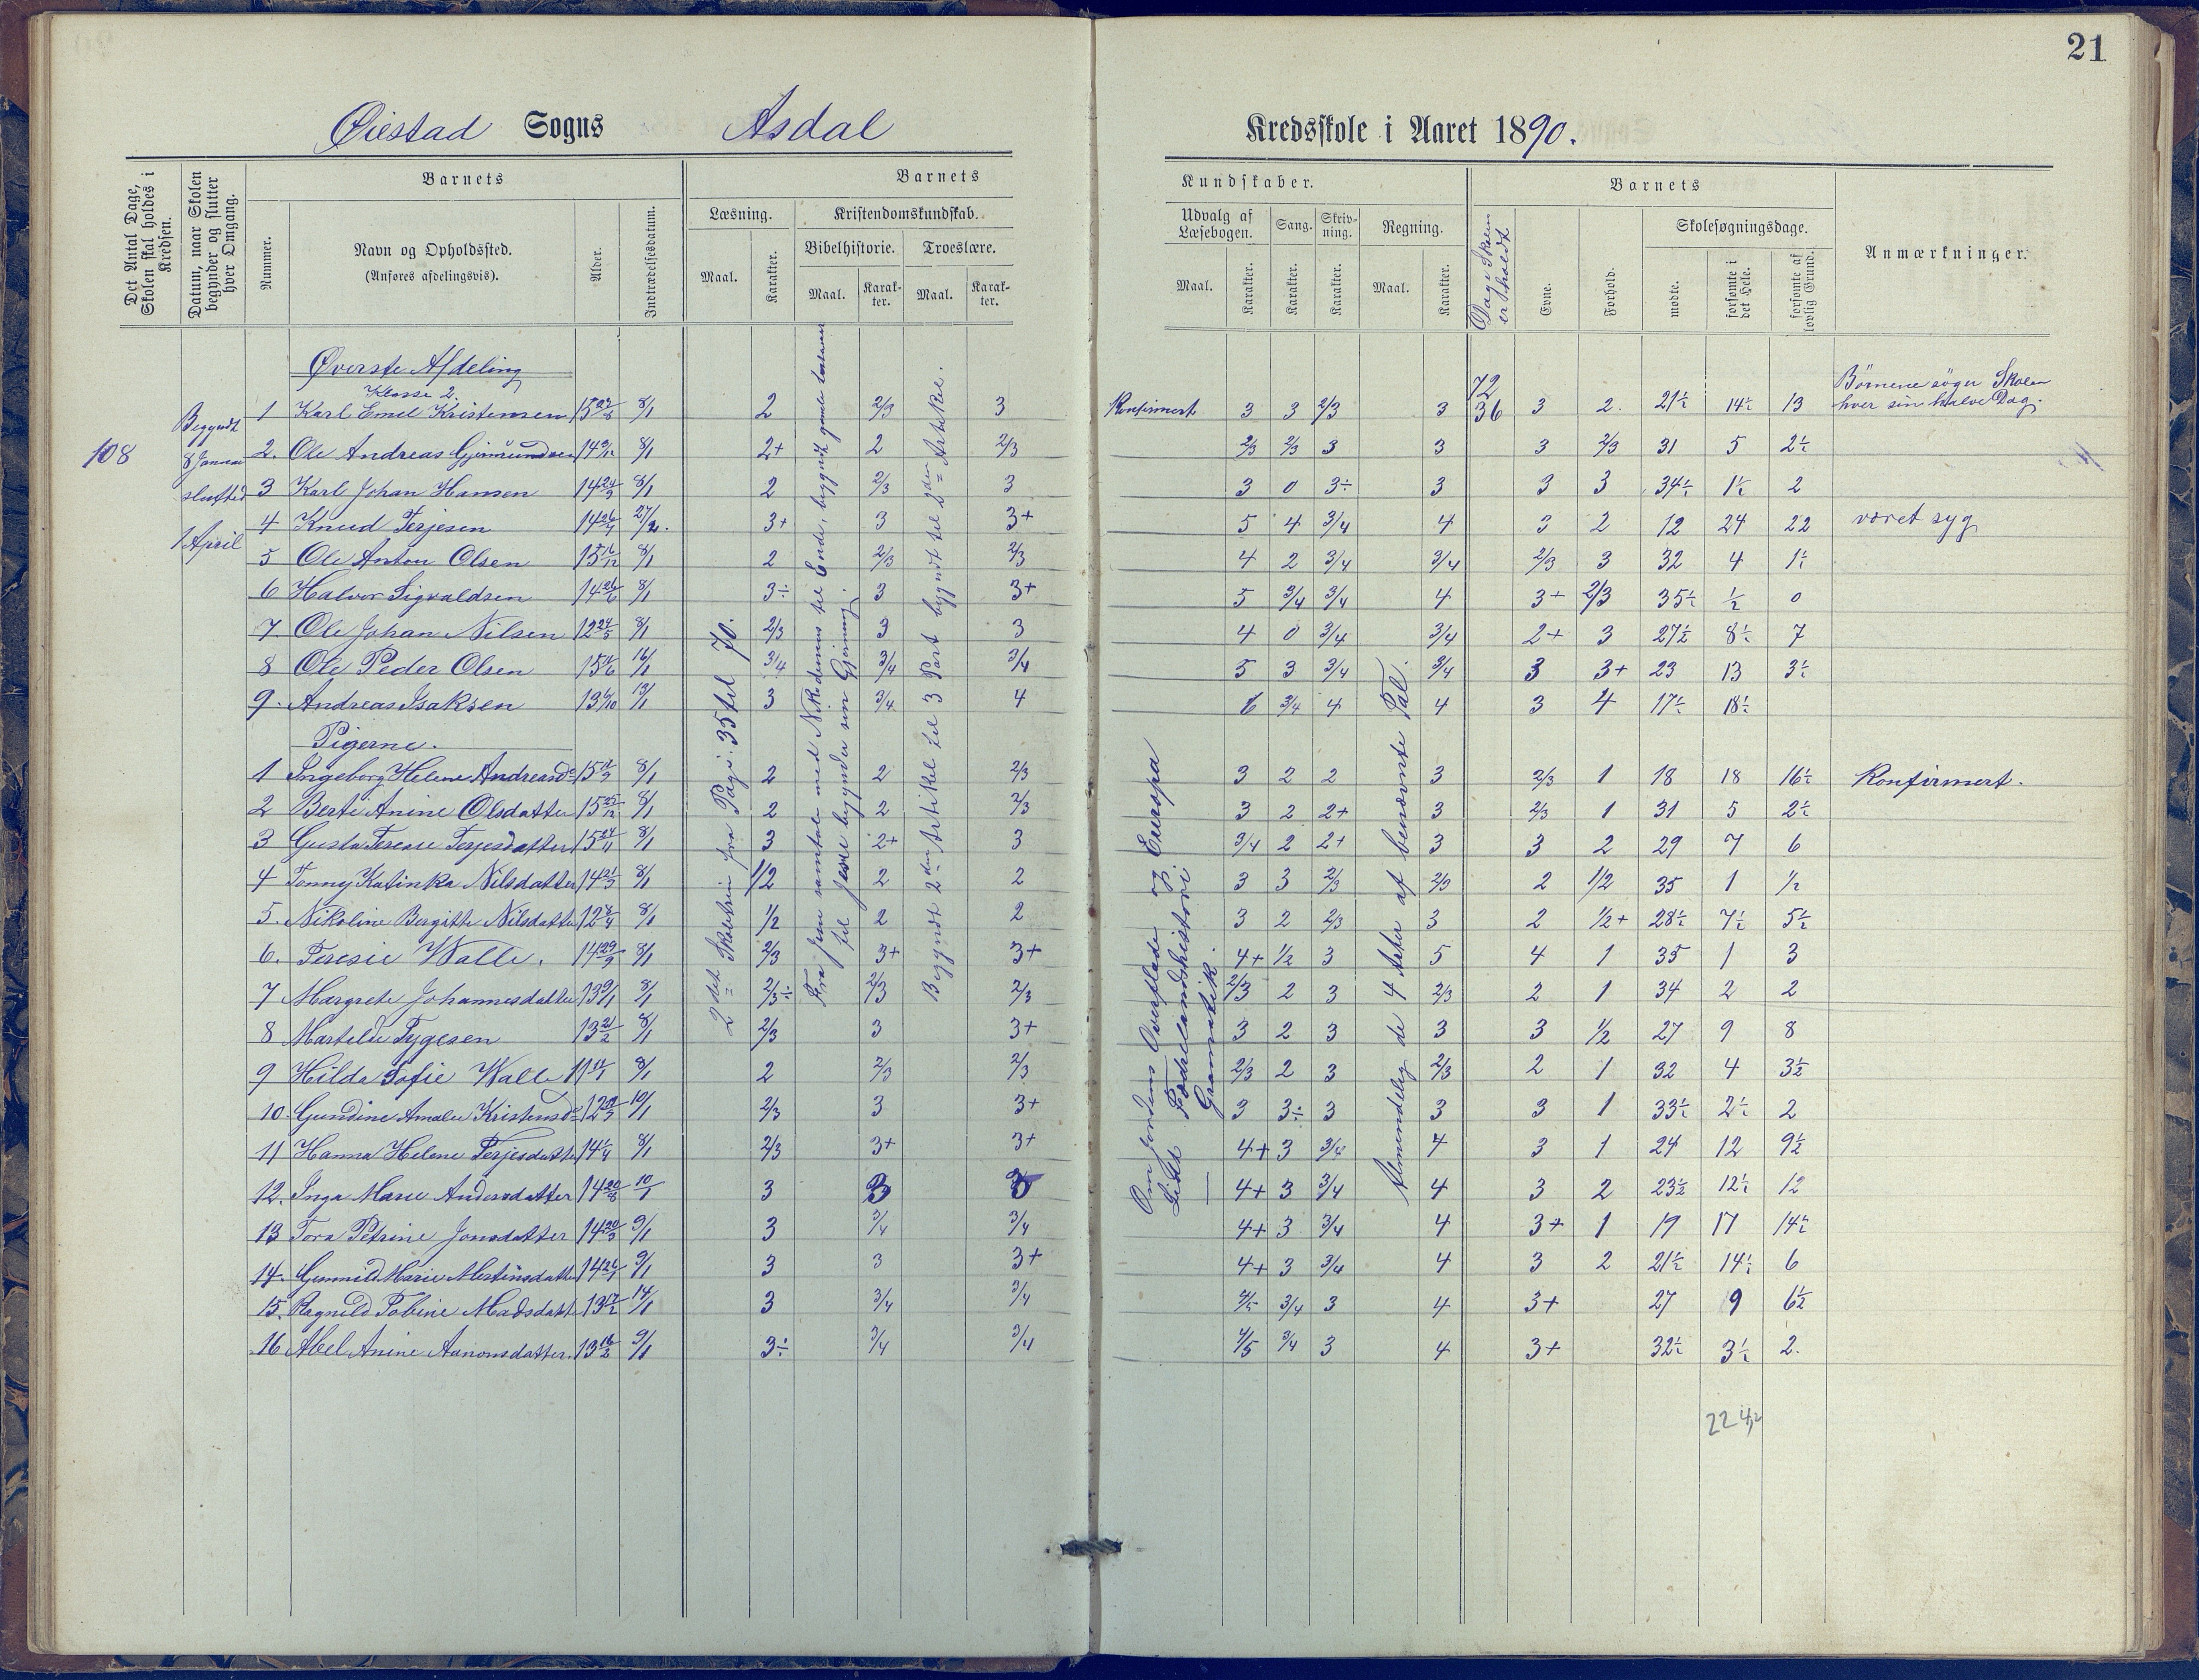 21
Øiestad Sogns Asdal Kredsskole i Aaret 1890.
Det Antal Dage, Skolen skal holdes i Kredsen.
Datum, naar Skolen begynder og slutter hver Omgang.
Barnets
Nummer.
Navn og Opholdssted.
(Anføres afdelingsvis).
Alder.
Indtrædelsesdatum.
Barnets Kundskaber.
Læsning.
Maal.
Karakter.
Kristendomskundskab.
Bibelhistorie.
Maal.
Karakter.
Troeslære.
Maal.
Karakter.
Udvalg af Læsebogen.
Maal.
Karakter.
Sang.
Karakter.
Skrivning.
Karakter.
Regning.
Maal.
Karakter.
Dage Skolen er holdt
Barnets
Evne.
Forhold.
Skolesøgningsdage.
mødte.
forsømte i det Hele.
forsømte af lovlig Grund.
Anmærkninger.
108
Begyndt
8 Januar
sluttet
1 April
Øverste Afdeling
Klasse 2.
1 Karl Emil Kristensen 8/1 2 2/3 3 Konfirmert 3 3 2/3 3 72 36 3 2. 21½ 14½ 13 Börnene söger Skolen hver sin halve Dag.
2. Ole Andreas Gjermundsen 8/1 2+ 2 2/3 2/3 2/3 3 3 3 2/3 31 5 2½
3 Karl Johan Hansen 14 24/9 8/1 2 2/3 3 3 0 3÷ 3 3 3 34½ 1½ 2
4 Knud Terjesen 27/2. 3+ 3 3+ 5 4 3/4 4 3 2 12 24 22 været syg
5 Ole Anton Olsen 15 16/12 8/1 2 2/3 2/3 4 2 3/4 3/4 2/3 3 32 4 1½
6 Halvor Sigvaldsen 14 26/6 8/1 3÷ 3 3+ 5 3/4 3/4 4 3+ 2/3 35½ ½ 0
7. Ole Johan Nilsen 12 24/5 8/1 2/3 3 3 4 0 3/4 3/4 2+ 3 27½ 8½ 7
8 Ole Peder Olsen 16/1 3/4 3/4 3/4 5 3 3/4 3/4 3 3+ 23 13 3½
9. Andreas Isaksen 13/1 3 3/4 4 6 3/4 4 4 3 4 17½ 18½
Pigerne.
1 Ingeborg Helene Andreasd. 8/1 2 2 2/3 3 2 2 3 2/3 1 18 18 16½ Konfirmert.
2 Berte Anine Olsdatter 15 25/12 8/1 2 2 2/3 3 2 2+ 3 2/3 1 31 5 2½
3 Gusta Terese Terjesdatter 15 24/11 8/1 3 2+ 3 3/4 2 2+ 3 3 2 29 7 6
4 Tonny Katinka Nilsdatter 14 21/3 8/1 1/2 2 2 3 3 2/3 2/3 2 1/2 35 1 ½
5. Nikoline Bergitte Nilsdatter 8/1 1/2 2 2 3 2 2/3 3 2 1/2+ 28½ 7½ 5½
6. Teresie Walle. 14 29/9 8/1 2/3 3+ 3+ 4+ 1/2 3 5 4 1 35 1 3
7 Margrete Johannesdatter 13 9/1 8/1 2/3÷ 2/3 2/3 2/3 2 3 2/3 2 1 34 2 2
8 Martelie Tygesen 13 21/2 8/1 2/3 3 3+ 3 2 3 3 3 1/2 27 9 8
9 Hilda Sofie Walle 8/1 2 2/3 2/3 2/3 2 3 2/3 2 1 32 4 3½
10. Gundine Amalie Kristensd. 10/1 2/3 3 3+ 3 3÷ 3 3 3 1 33½ 2½ 2
11 Hanna Helene Terjesdatter 8/1 2/3 3+ 3+ 4+ 3 3/4 4 3 1 24 12 9½
12. Inga Marie Andersdatter 10/1 3 3 3 4+ 3 3/4 4 3 2 23½ 12½ 12
13 Tora Petrine Jonsdatter 14 20/3 9/1 3 3/4 3/4 4+ 3 3/4 4 3+ 1 19 17 14½
14. Gunnild Marie Mertinsdatter 9/1 3 3 3+ 4+ 3 3/4 4 3 2 21½ 14½ 6
15. Ragnild Tobine Madsdatter 14/1 3 3/4 3/4 4/5 3/4 3 4 3+ 27 9 6½
16 Abel Anine Aanonsdatter. 13 16/2 9/1 3÷ 3/4 3/4 4/5 3/4 3 4 3+ 32½ 3½ 2.
2det Skoletrin fra Page 35 til 70.
Fra Jesu samtale med Nikodemus til Ende, begyndt gamle testament
til Jesus begynder sin Gjerning.
Begyndt 2den Artikel til 3 Part begyndt til 2den Artikel.
Om Jordens Overflade og Europa
Lidt Fædrelandshistorie
— Gramatik
Almindelig de 4 Arter af benævnte Tal.
224½